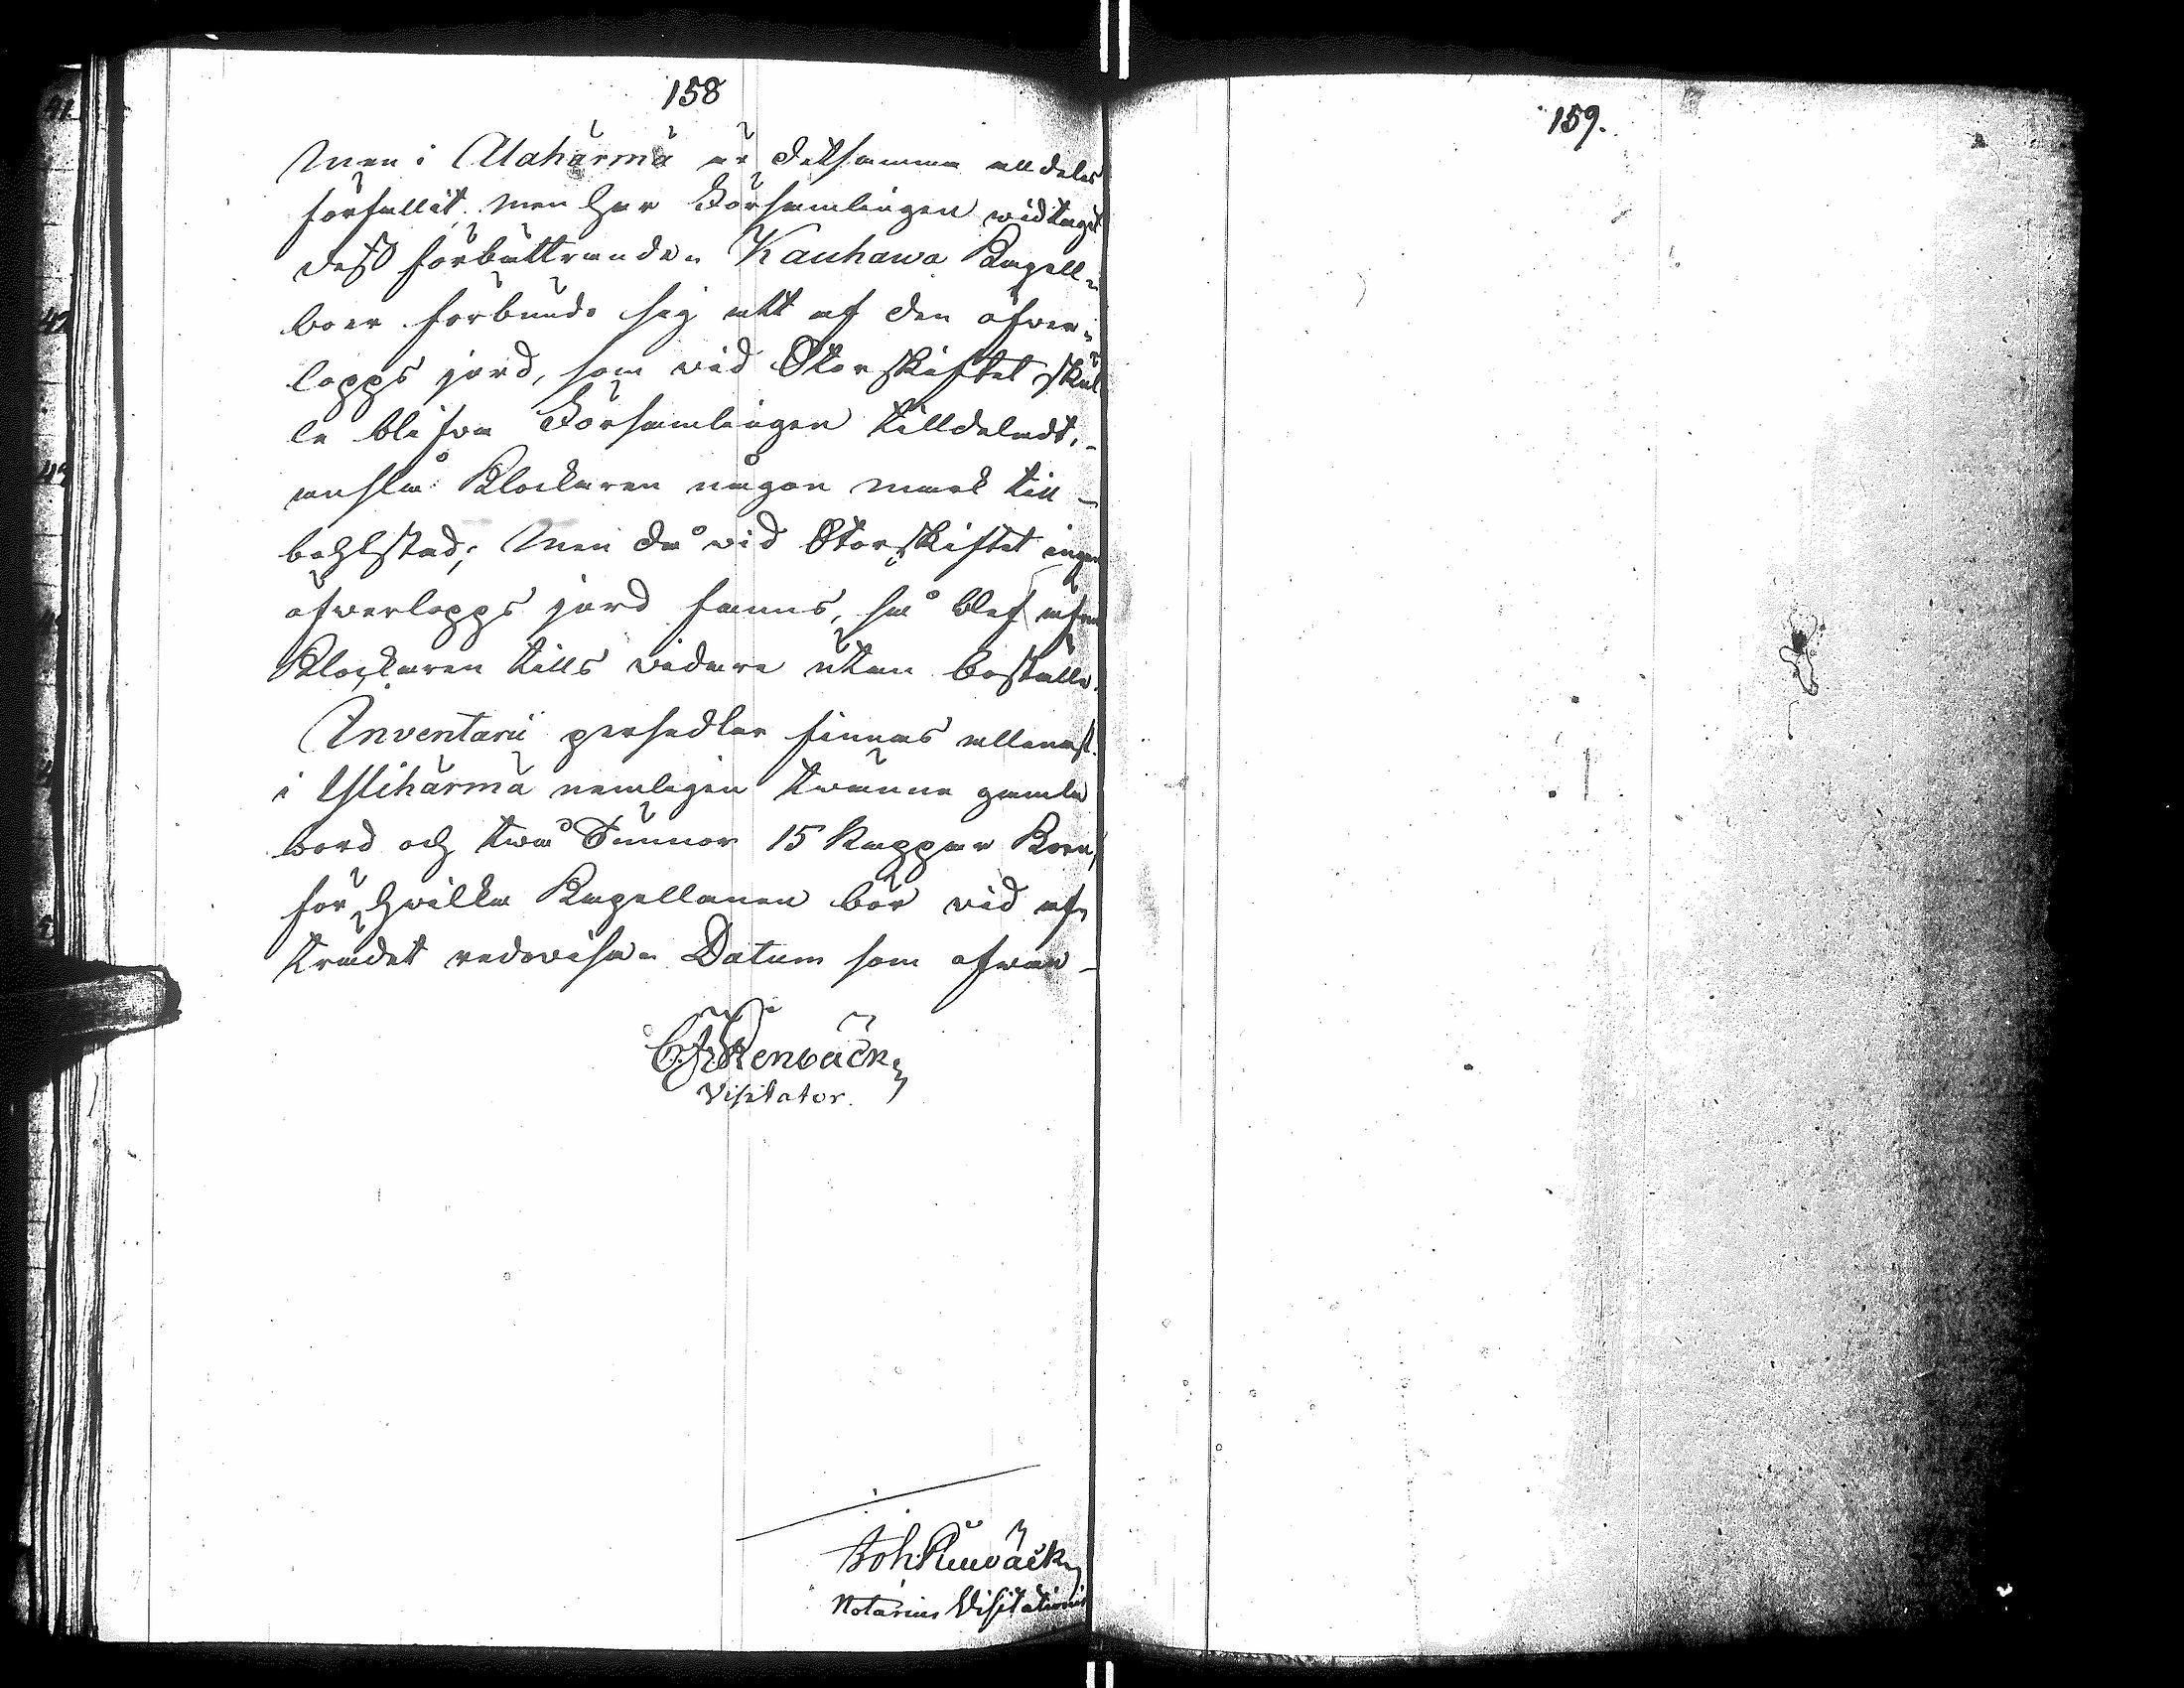 158
Men i Alahärmä är detsamma alldeles
förfallit, men har Församlingen widtagit
dess förbättrande. Kauhawa Kapell-
boer förbundo sig att af den öfver-
lopps jord, som vid Storskiftet skul
le blifva Församlingen tilldeladt,
anslå Klockaren någon mark till
bohlstad; Men då vid Storskiftet ingen
öfverlopps jord fanns, så blef äfven
Klockaren tills vidare utan boställe.
Inventarii persedlar finnas allenast
i Ylihärmä nemligen twänne gamla
bord och twå Tunnor 15 kappar Korn,
för hvilka Kapellanen bör vid af-
trädet redovisa. Datum som ofvan
Renvack
Visitator.
Joh Renvack
Notarius Visitationis
159.
41.
42
43